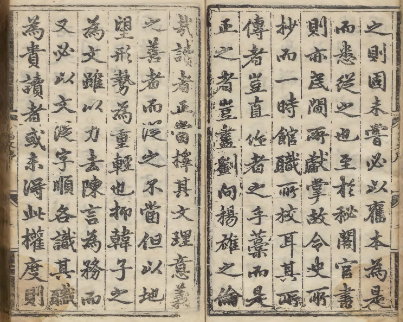 之則固未嘗必以舊本為是
而悉從之也至於秘閣官書
則亦民間所獻掌故令史所
抄而一時館職所校耳其所
傳者豈真作者之手藁而是
正之者豈盡劉向楊雄之倫
哉讀者正當擇其文理意義
之善者而從之不當但以地
望形勢為重輕也抑韓子之
為文雖以力去陳言為務而
又必以文從字順各識其職
為貴讀者或未得此權度則